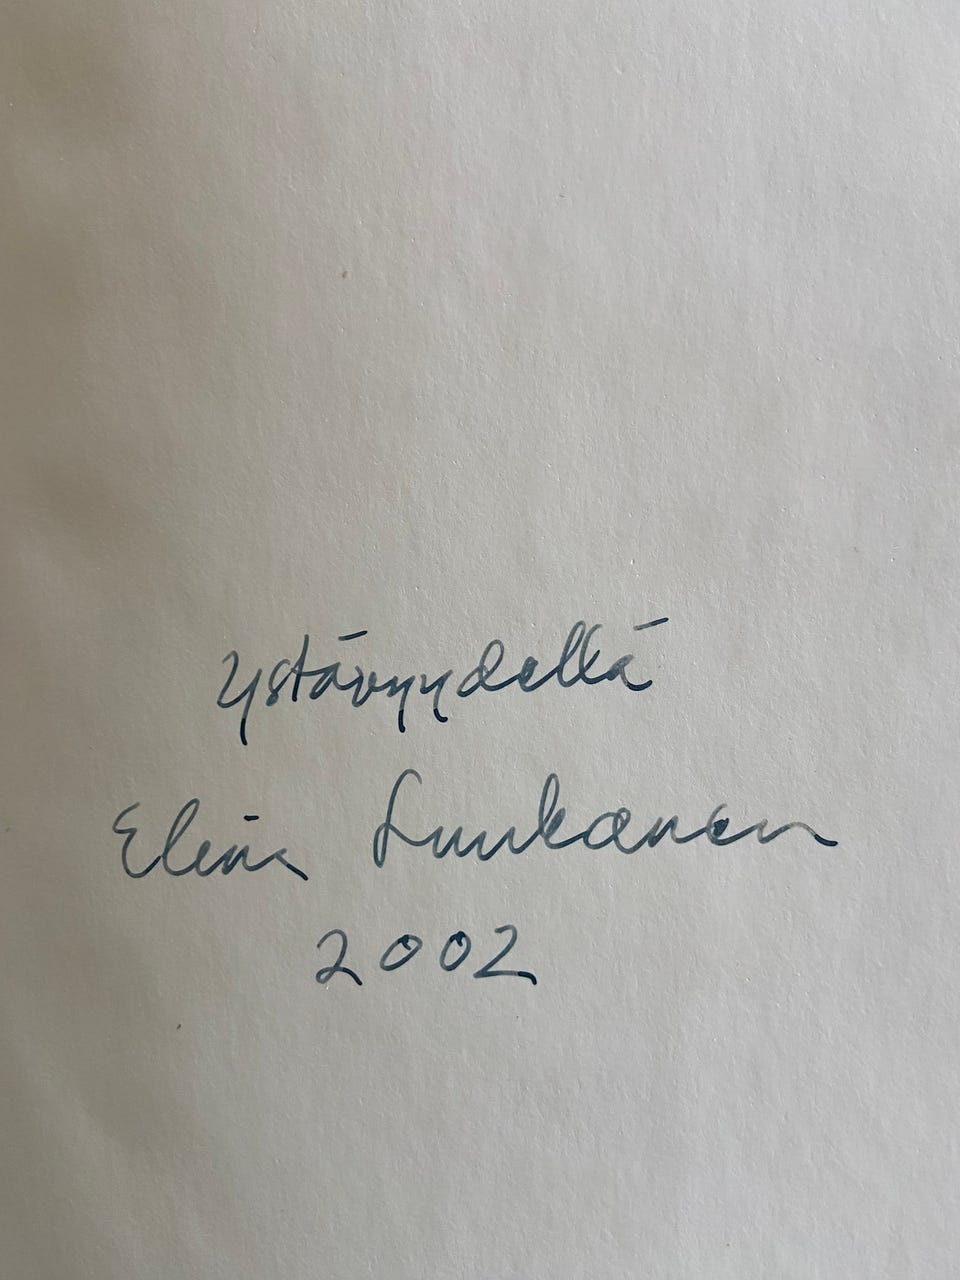 Ystävyydellä
Elina Luukanen
2002